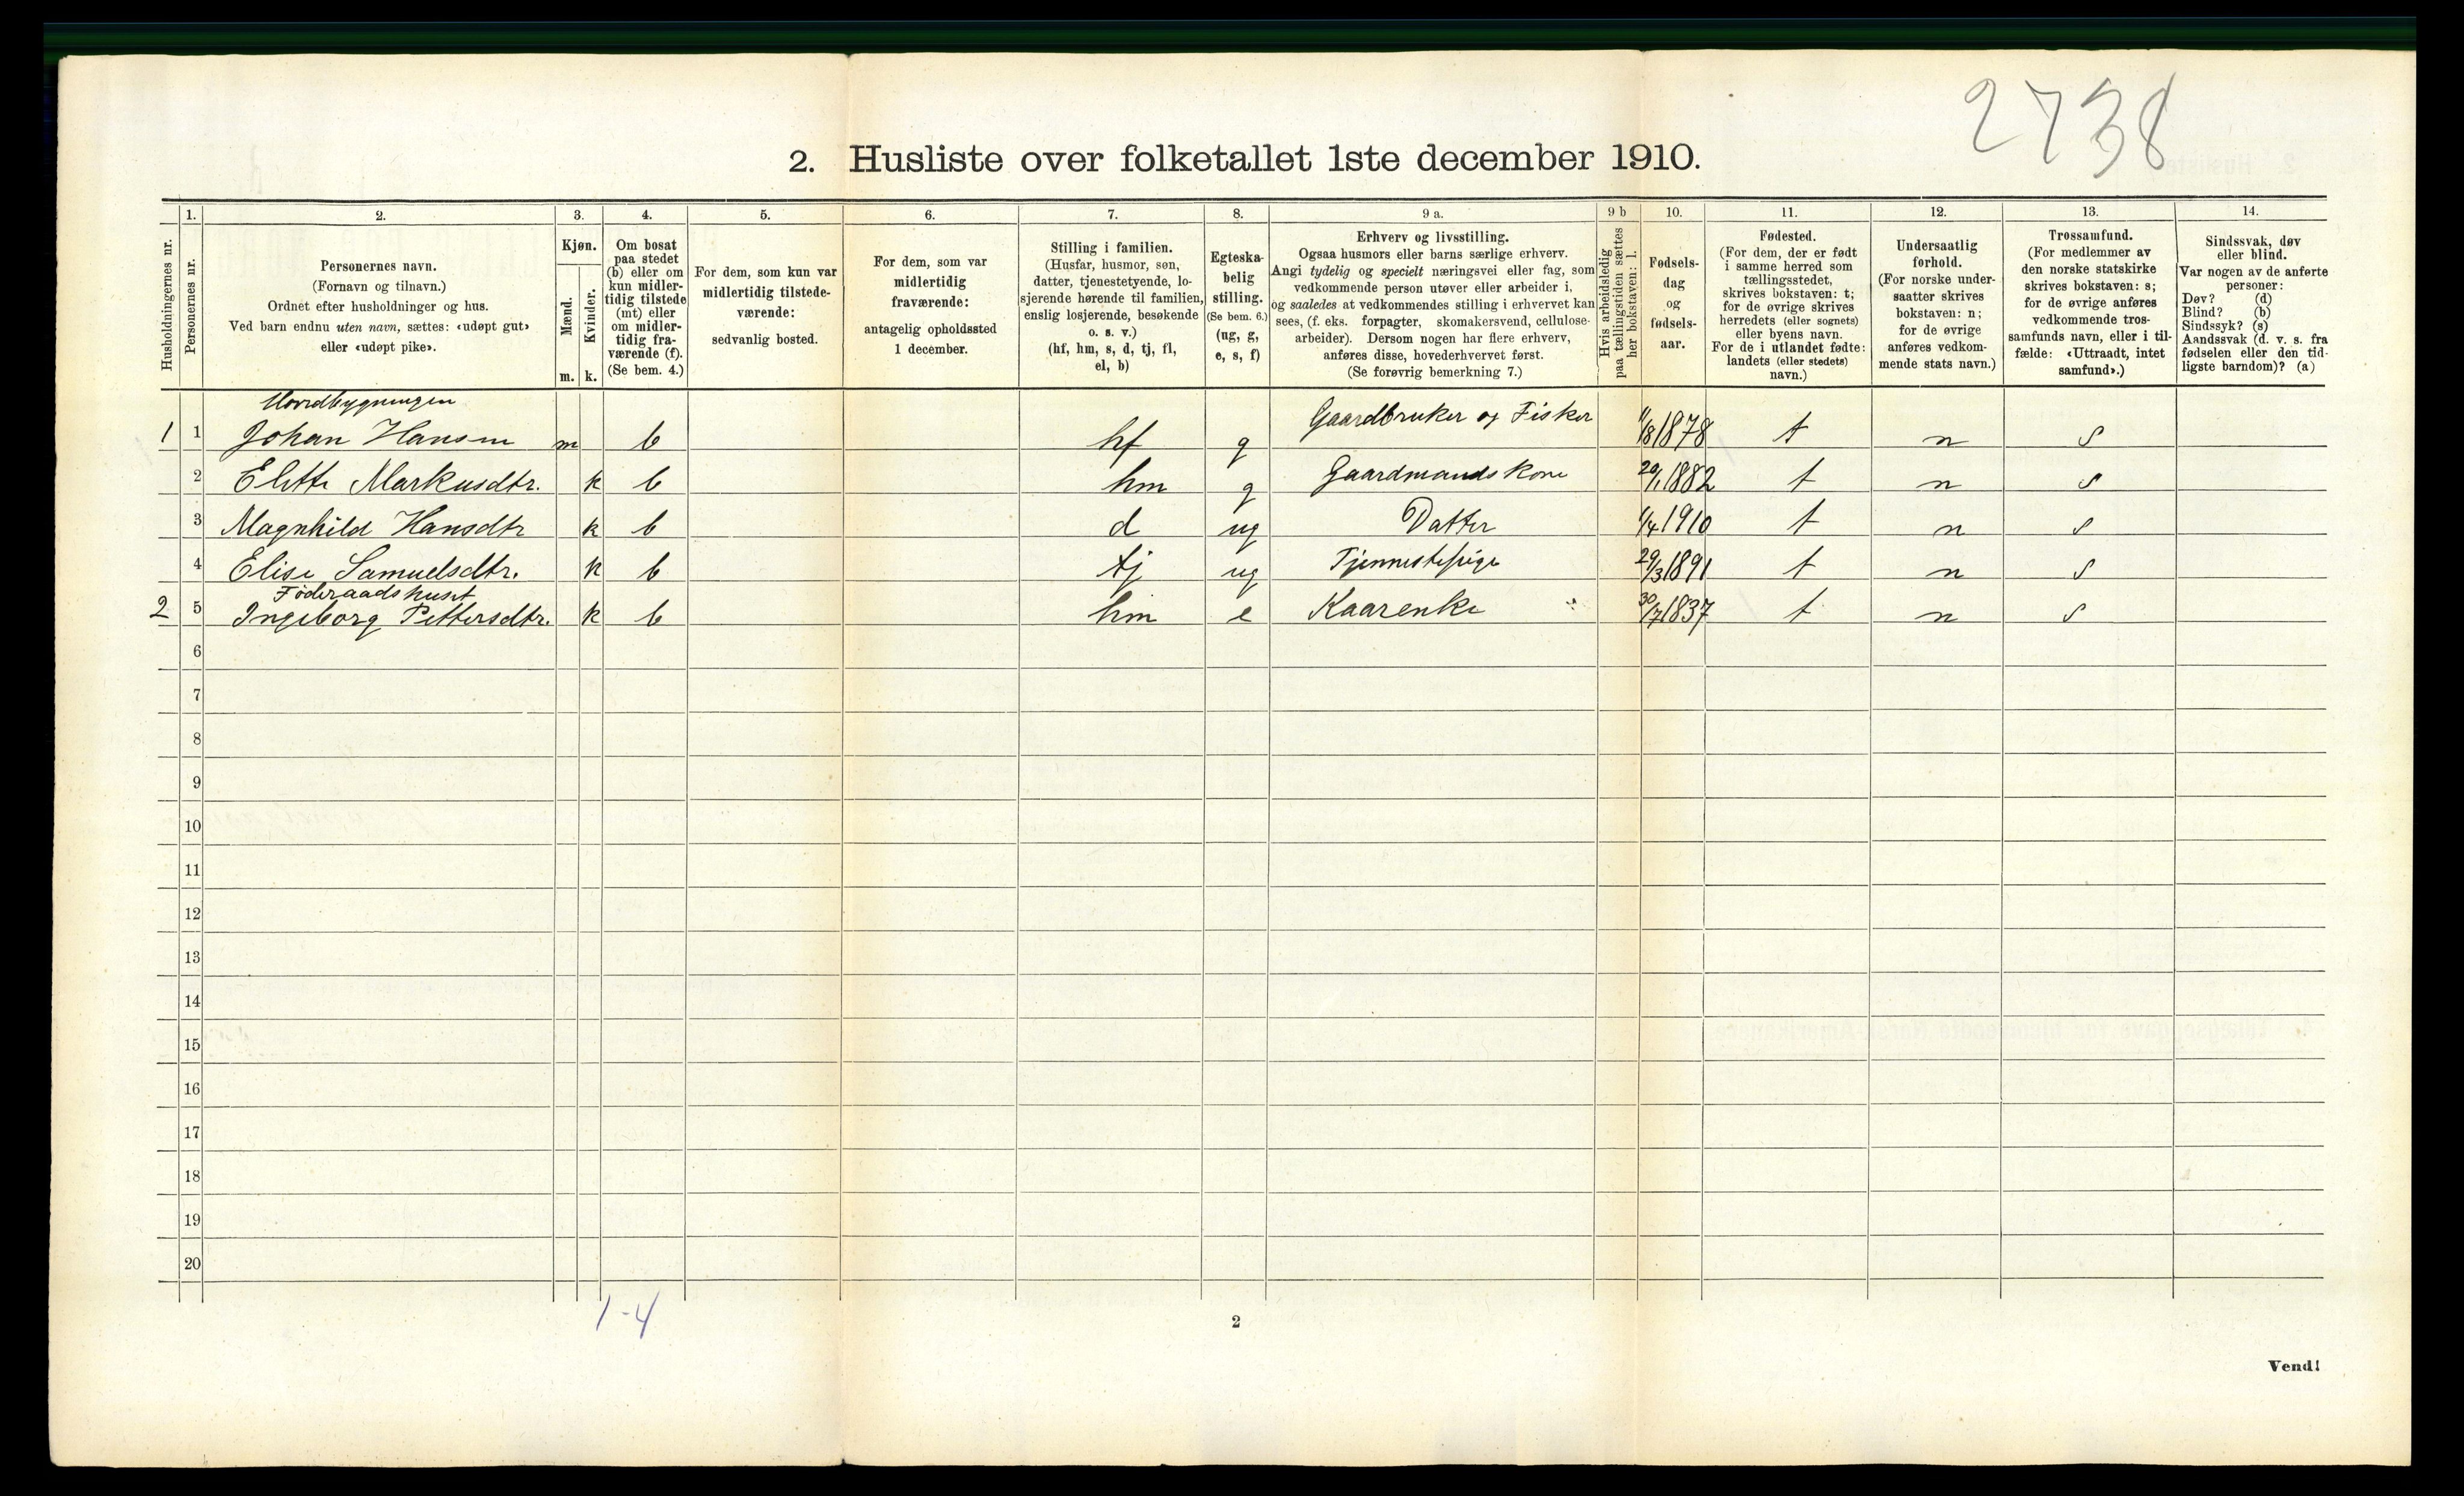 2738
2. Husliste over folketallet 1ste december 1910.
Husholdningernes nr.
1.
Personernes nr.
2.
Personernes navn.
(Fornavn og tilnavn.)
Ordnet efter husholdninger og hus.
Ved barn endnu uten navn, sættes: «udøpt gut»
eller «udøpt pike».
3.
Kjøn.
Mænd.
Kvinder.
m. k.
4.
Om bosat
paa stedet
(b) eller om
kun midler-
tidig tilstede
(mt) eller
om midler-
tidig fra-
værende (f).
(Se bem. 4.)
5.
For dem, som kun var
midlertidig tilstede-
værende:
sedvanlig bosted.
6.
For dem, som var
midlertidig
fraværende:
antagelig opholdssted
1 december.
7.
Stilling i familien.
(Husfar, husmor, søn,
datter, tjenestetyende, lo-
sjerende hørende til familien,
enslig losjerende, besøkende
o. s. v.)
(hf, hm, s, d, tj, fl,
el, b)
8.
Egteska-
belig
stilling.
(Se bem. 6.)
(ug, g,
e, s, f)
9 a.
Erhverv og livsstilling.
Ogsaa husmors eller barns særlige erhverv.
Angi tydelig og specielt næringsvei eller fag, som
vedkommende person utøver eller arbeider i,
og saaledes at vedkommendes stilling i erhvervet kan
sees, (f. eks. forpagter, skomakersvend, cellulose-
arbeider). Dersom nogen har flere erhverv,
anføres disse, hovederhvervet først.
(Se forøvrig bemerkning 7.)
9 b
Hvis arbeidsledig
paa tællingstiden sættes
her bokstaven: l.
10.
Fødsels-
dag
og
fødsels-
aar.
11.
Fødested.
(For dem, der er født
i samme herred som
tællingsstedet,
skrives bokstaven: t;
for de øvrige skrives
herredets (eller sognets)
eller byens navn.
For de i utlandet fødte:
landets (eller stedets)
navn.)
12.
Undersaatlig
forhold.
(For norske under-
saatter skrives
bokstaven: n;
for de øvrige
anføres vedkom-
mende stats navn.)
13.
Trossamfund.
(For medlemmer av
den norske statskirke
skrives bokstaven: s;
for de øvrige anføres
vedkommende tros-
samfunds navn, eller i til-
fælde: «Uttraadt, intet
samfund».)
14.
Sindssvak, døv
eller blind.
Var nogen av de anførte
personer:
Døv? (d)
Blind? (b)
Sindssyk? (s)
Aandssvak (d. v. s. fra
fødselen eller den tid-
ligste barndom)? (a)
Hovedbygningen
1 1 Johan Hansen m b hf g Gaardbruker og Fisker 11/8 1878 t n s
2 Elette Markusdtr. k b hm g Gaardmandskone 20/1 1882 t n s
3 Magnhild Hansdtr k b d ug Datter 1/4 1910 t n s
4 Elise Samuelsdtr. k b tj ug Tjennestepige 29/3 1891 t n s
Føderaadshuset
2 5 Ingeborg Pettersdtr. k b hm e Kaarenke 30/7 1837 t n s
6
7
8
9
10
11
12
13
14
15
16
17
18
19
20
1-4
2
Vend!